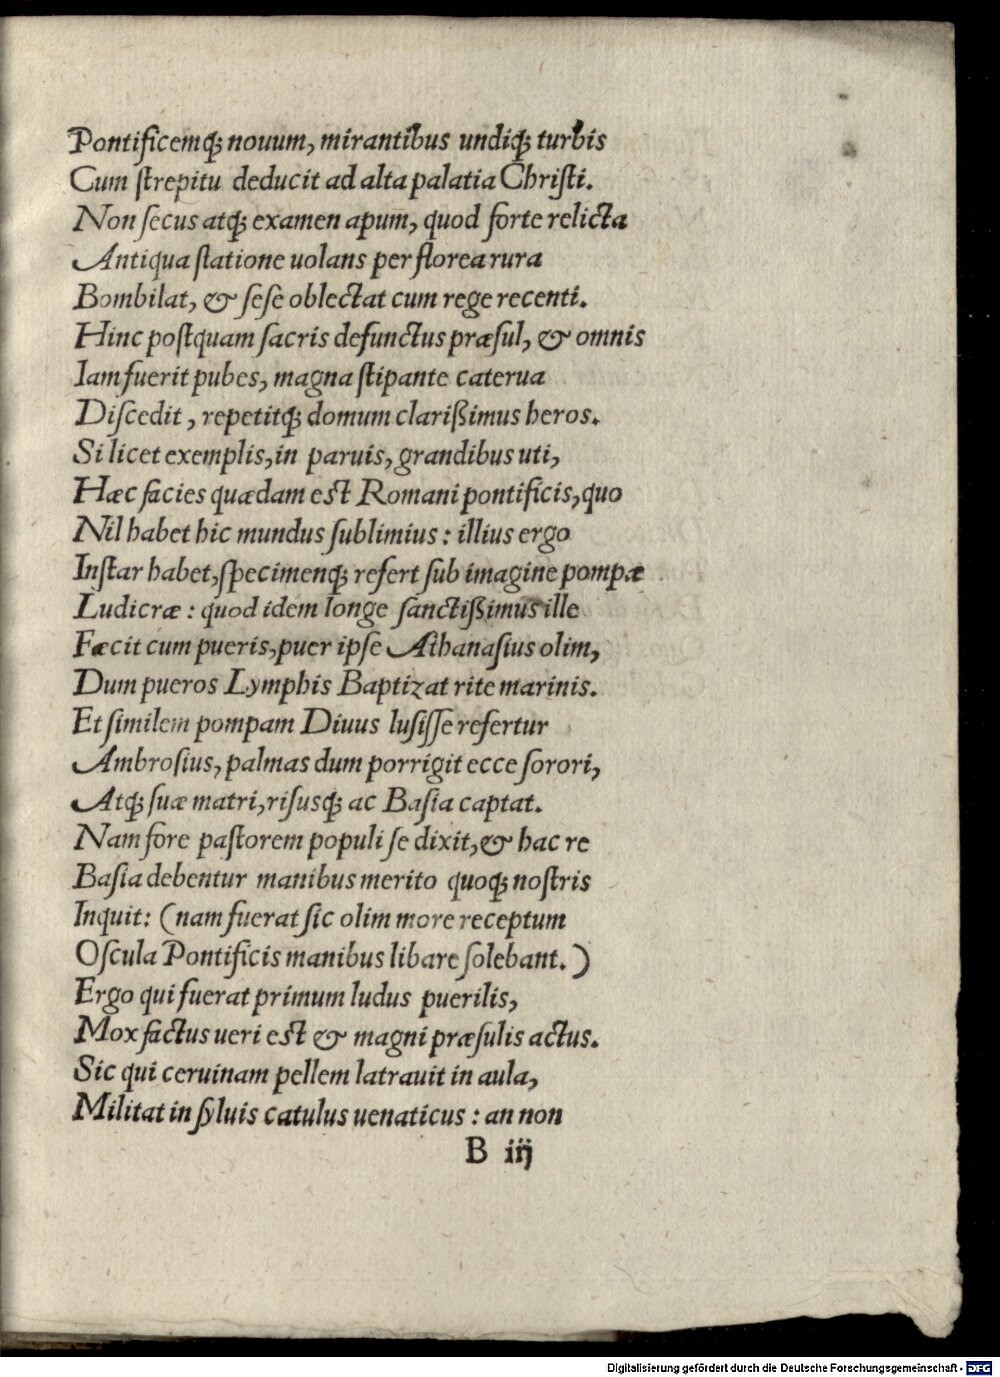 Pontificemq; nouum, mirantibus undiq; turbis
Cum ſtrepitu deducit ad alta palatia Chriſti.
Non ſecus atq; examen apum, quod forte relicta
Antiqua ſtatione uolans per florea rura
Bombilat, & ſeſe oblectat cum rege recenti.
Hinc poſtquam ſacris defunctus præſul, & omnis
Iam fuerit pubes, magna ſtipante caterua
Diſcedit, repetitq; domum clarißimus heros.
Si licet exemplis, in paruis, grandibus uti,
Hæc facies quædam est Romani pontificis, quo
Nil habet hic mundus ſublimius: illius ergo
Inſtar habet, ſpecimenq; refert ſub imagine pompæ
Ludicræ: quod idem longe ſanctißimus ille
Fæcit cum pueris, puer ipſe Athanaſius olim,
Dum pueros Lymphis Baptizat rite marinis.
Et ſimilem pompam Diuus luſiſſe refertur
Ambroſius, palmas dum porrigit ecce ſorori,
Atq; ſuæ matri, riſusq; ac Baſia captat.
Nam fore paſtorem populi ſe dixit, & hac re
Baſia debentur manibus merito quoq; noſtris
Inquit: (nam fuerat ſic olim more receptum
Oſcula Pontificis manibus libare ſolebant.)
Ergo qui fuerat primum ludus puerilis,
Mox factus ueri est & magni præſulis actus.
Sic qui ceruinam pellem latrauit in aula,
Militat in ſyluis catulus uenaticus: an non
B iij
Digitalisierung gefördert durch die Deutsche Forschungsgemeinschaft - DFG